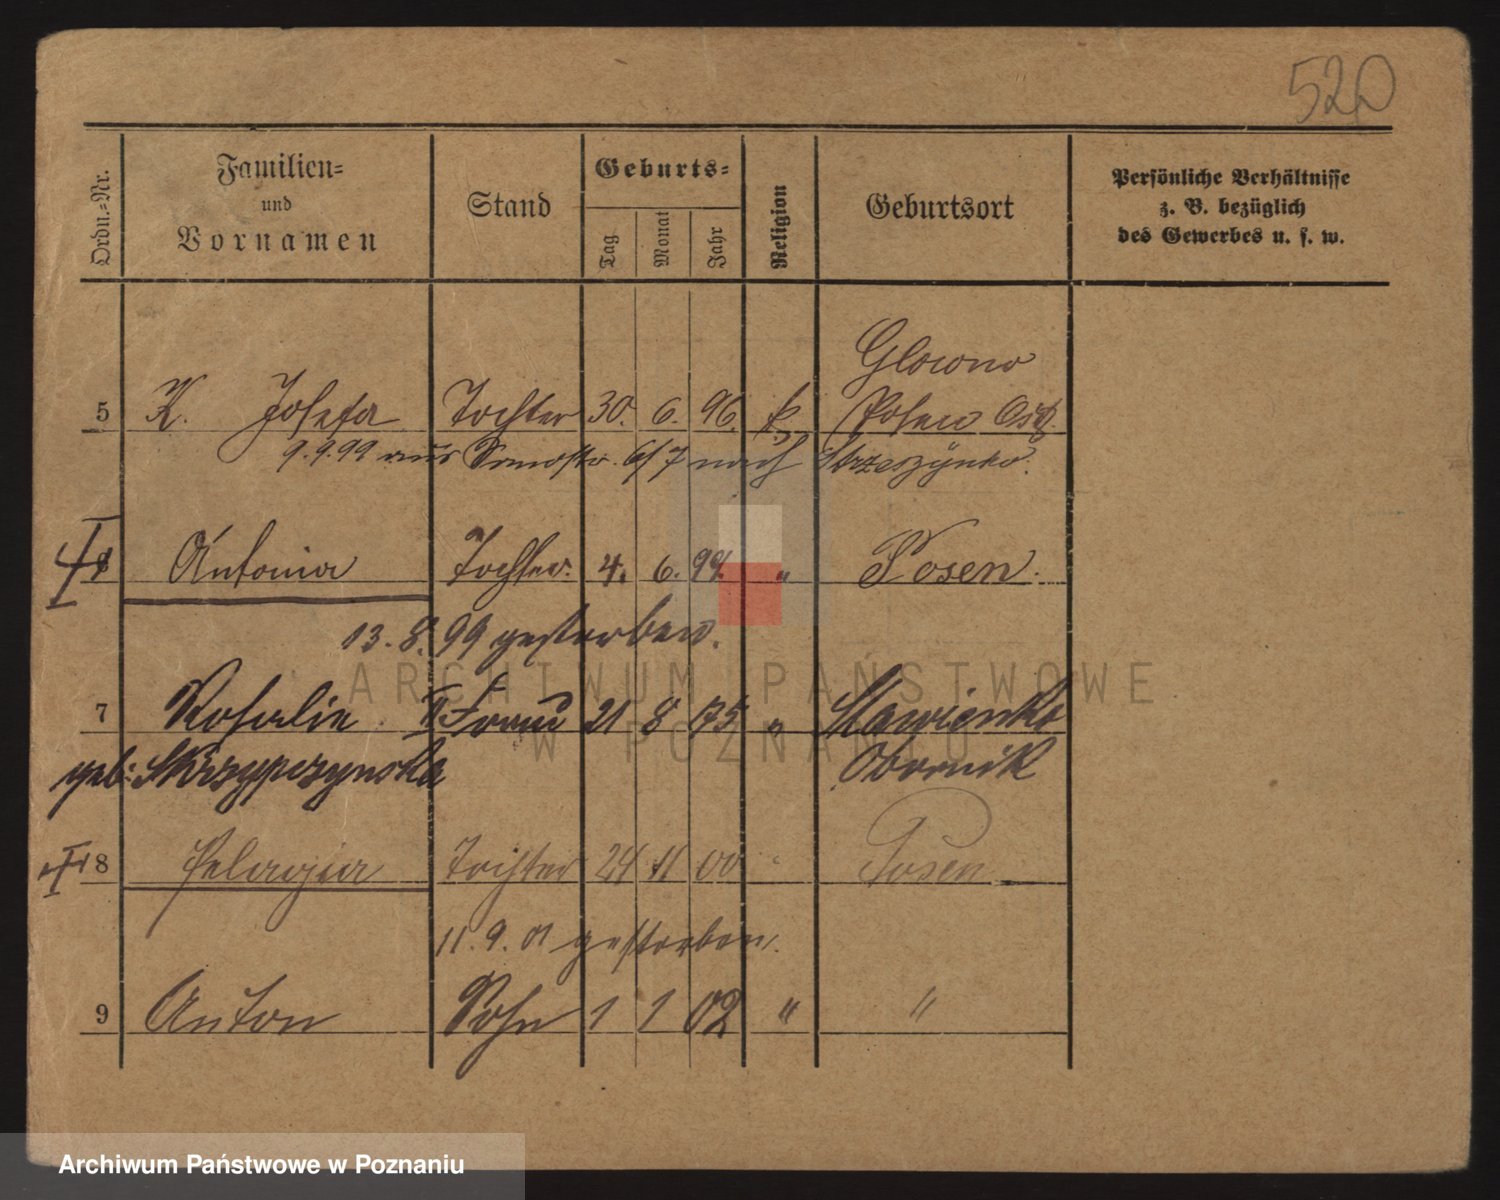 520
Ordn.-Nr.
Familien- und Vornamen
Stand
Geburts-
Tag
Monat
Jahr
Religion
Geburtsort
Persönliche Verhältnisse
z. B. bezüglich
des Gewerbes u. s. w.
Glowno
5 K. Josefa Tochter 30. 6. 96. k. Posen Ost
9.9.99 aus 6/7 nach Strzeszynko.
Antonia Tochter. 4. 6. " Posen.
13. 8. 99 gestorben.
7 Rosalie II Frau 21 8 75 " Slawienko
geb: Skrzypczynska Obornik
8 Pelagia Tochter 24 11 00 " Posen
11. 9. 01 gestorben.
9 Anton Sohn 1 1 02 " "
ARCHIWUM PAŃSTWOWE
W POZNANIU
Archiwum Państwowe w Poznaniu